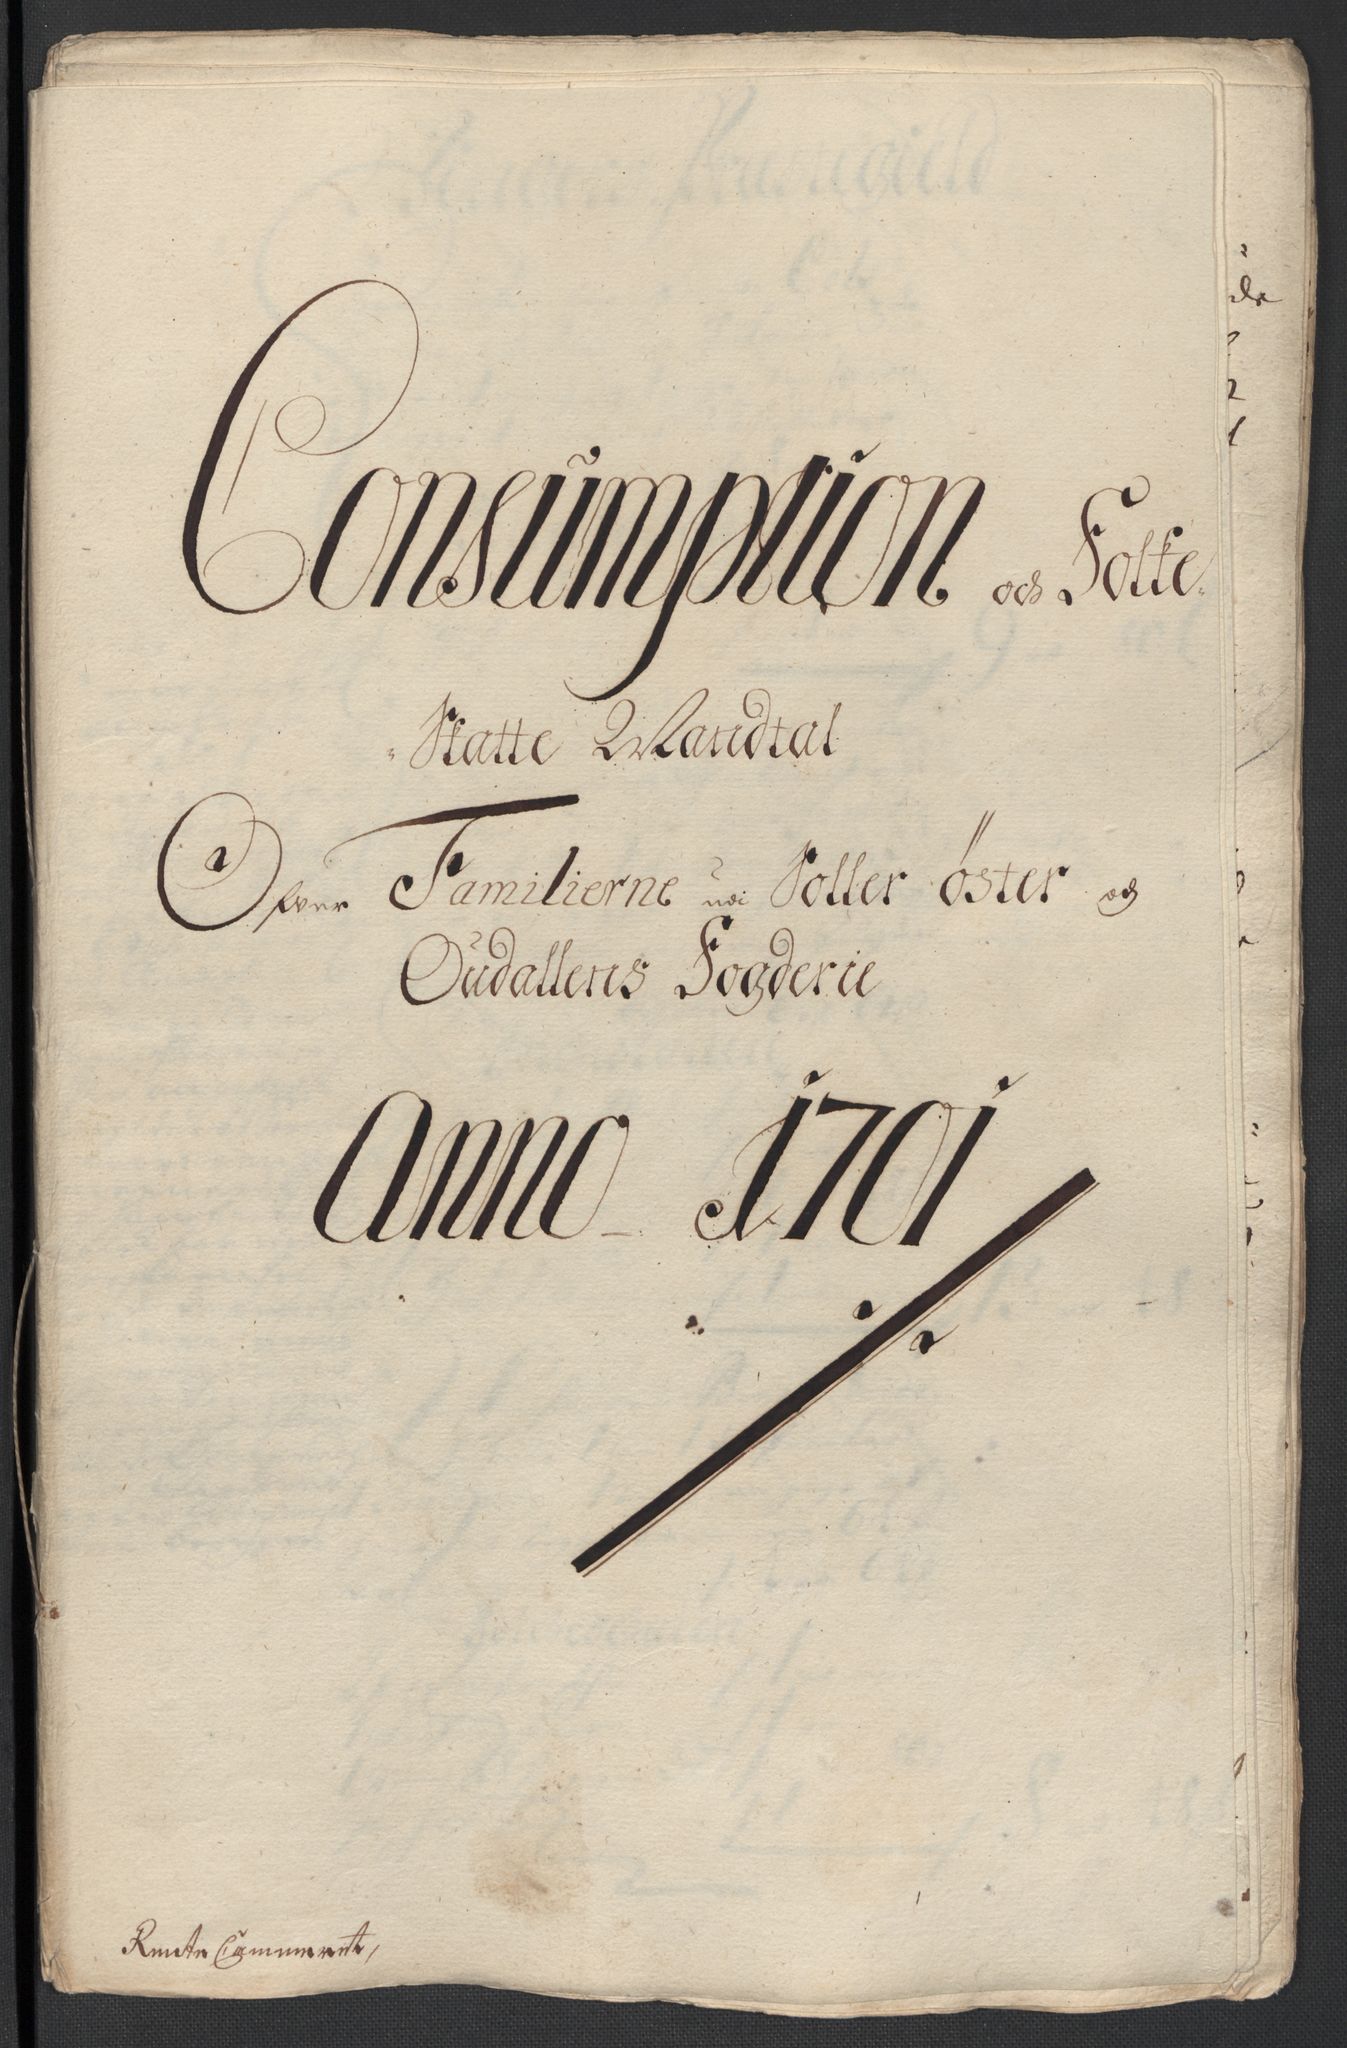 Consumption och Folke-
-Skatte Mandtal
Ofver Familierne udi Soller öster og
Oudallens Fogderie
Anno 1701
Rente Cammeret,